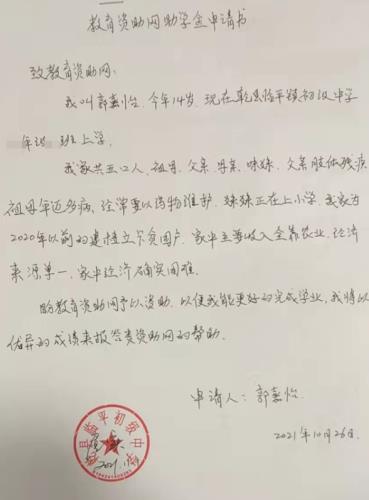 教育资助网助学金申请书
致教育资助网：
我叫郭嘉怡，今年14岁，现在乾县临平镇初级中学
年级 班上学。
我家共五口人，祖母、父亲、母亲、妹妹，父亲肢体残疾
祖母年迈多病，经常要以药物维护，妹妹正在上小学，我家为
2020年以前的建档立卡贫困户，家中主要收入全靠农业，经济
来源单一，家中经济确实困难。
盼教育资助网予以资助，以便我能更好的完成学业，我将以
优异的成绩来报答贵资助网的帮助。
申请人：郭嘉怡
2021年10月26日
县临平初级中